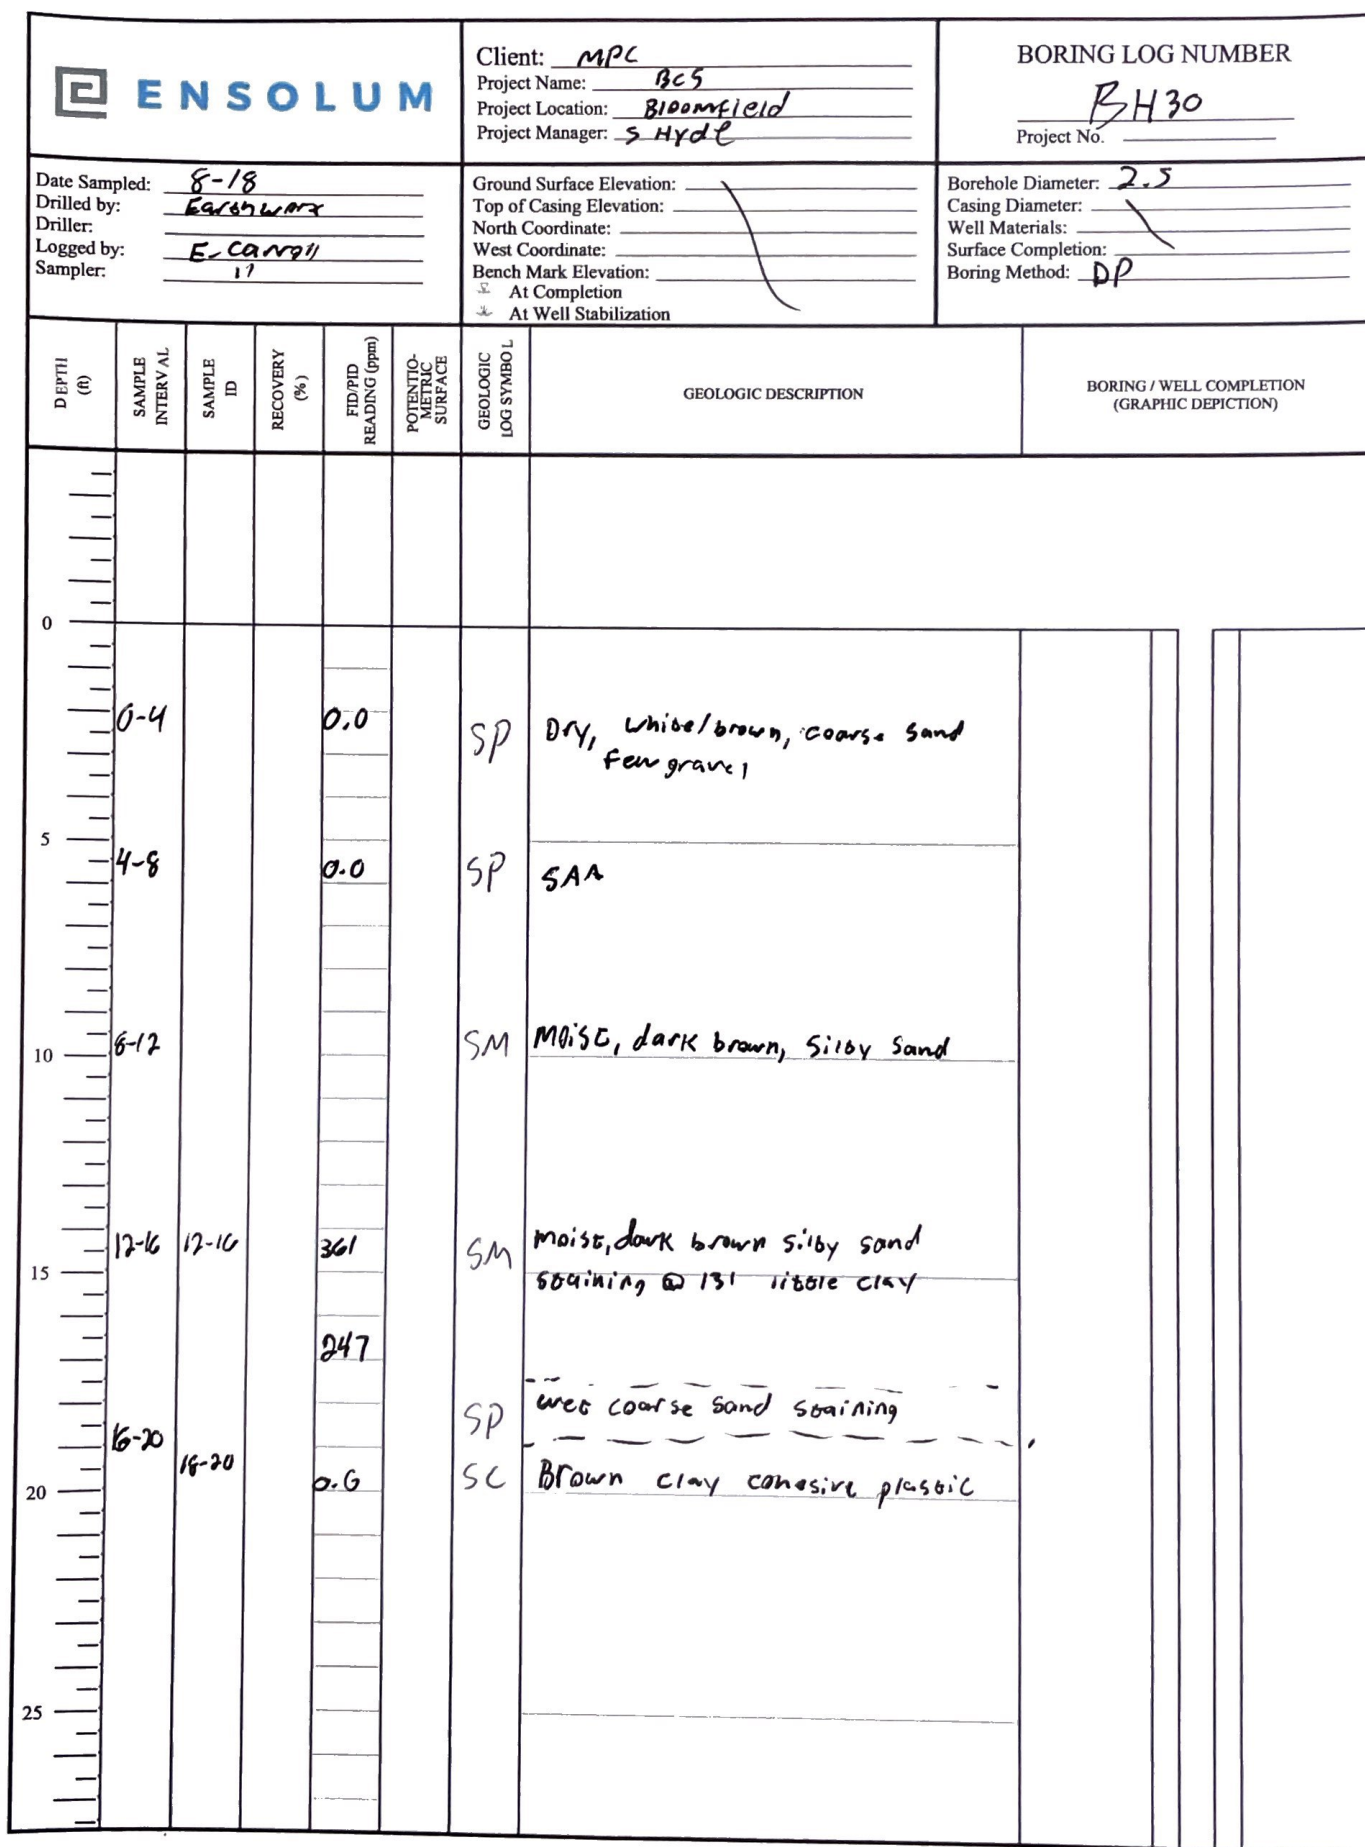 ENSOLUM
Client: MPC
Project Name: BCS
Project Location: Bloomfield
Project Manager: S Hyde
BORING LOG NUMBER
BH30
Project No.
Date Sampled: 8-18
Drilled by: Earthworx
Driller:
Logged by: E. Carroll
Sampler: 11
Ground Surface Elevation:
Top of Casing Elevation:
North Coordinate:
West Coordinate:
Bench Mark Elevation:
At Completion
At Well Stabilization
Borehole Diameter: 2.5
Casing Diameter:
Well Materials:
Surface Completion:
Boring Method: DP
DEPTH (ft)
SAMPLE INTERVAL
SAMPLE ID
RECOVERY (%)
FID/PID READING (ppm)
POTENTIO-METRIC SURFACE
GEOLOGIC LOG SYMBOL
GEOLOGIC DESCRIPTION
BORING / WELL COMPLETION
(GRAPHIC DEPICTION)
0
0-4 0.0 SP Dry, white/brown, coarse sand
few gravel
5
4-8 0.0 SP SAA
10 8-12 SM Moist, dark brown, silty sand
12-16 12-16 361 SM moist, dark brown silty sand
15 staining @ 13' little clay
247
SP wet coarse sand staining
16-20
18-20 0.6 SC Brown clay cohesive plastic
20
25